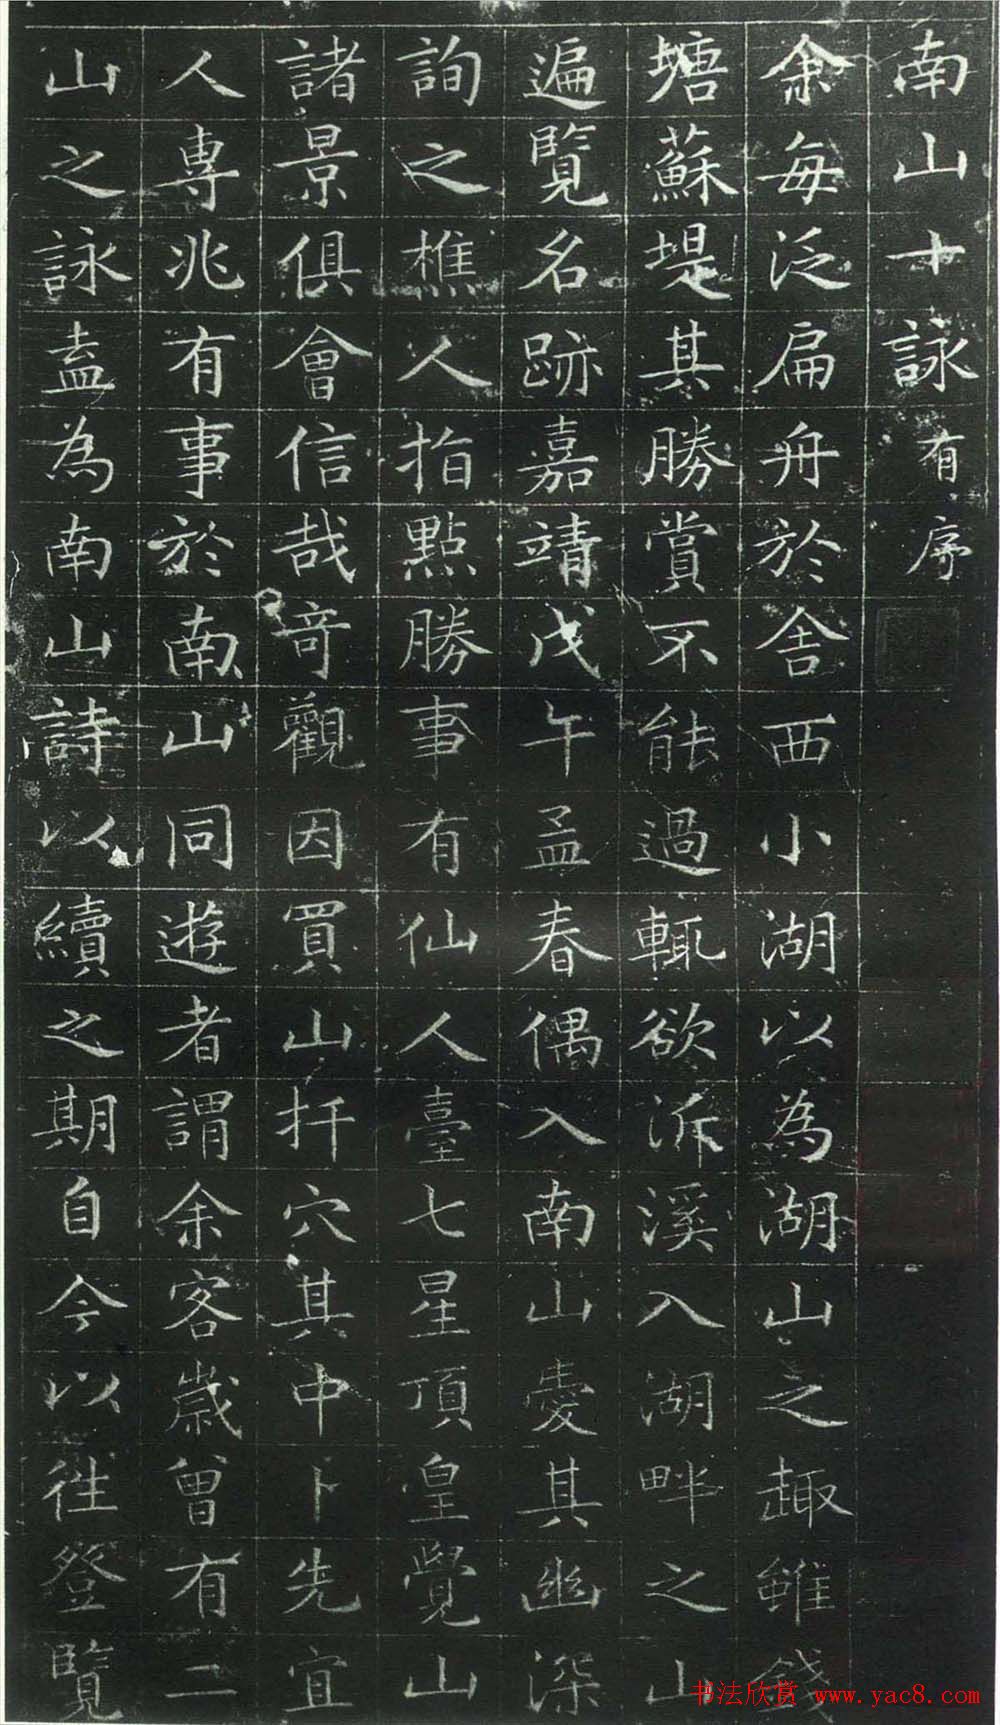 南山十詠有序
余每泛扁舟於舍西小湖以為湖山之趣雖錢
塘蘇堤其勝賞不能過輒欲泝溪入湖畔之山
遍覽名跡嘉靖戊午孟春偶入南山愛其幽深
詢之樵人指點勝事有仙人臺七星頂皇覺山
諸景俱會信哉奇觀因買山扦穴其中卜先宜
人專兆有事於南山同遊者謂余客歲曾有二
山之詠盍為南山詩以續之期自今以往登覽
书法欣赏 www.yac8.com